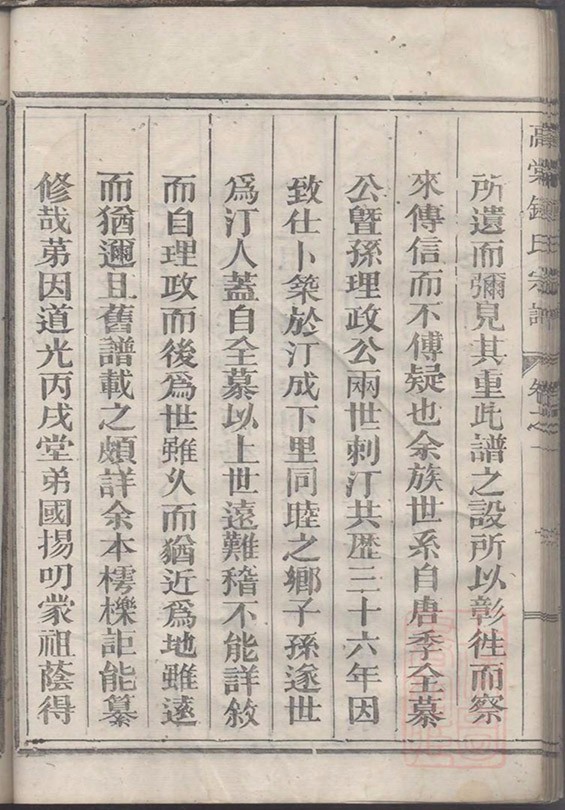 所遺而彌見其重此譜之設所以彰徃而察
來傳信而不傅疑也余族世系自唐季全慕
公曁孫理政公兩世刺汀共歷三十六年因
致仕卜築於汀成下里同睦之鄉子孫遂世
爲汀人蓋自全慕以上世遠難稽不能詳敘
而自理政而後爲世雖乆而猶近爲地雖遠
而猶邇且舊譜載之頗詳余本樗櫟詎能纂
修哉苐因道光丙戌堂弟國揚叨蒙祖蔭得
鍾氏宗譜